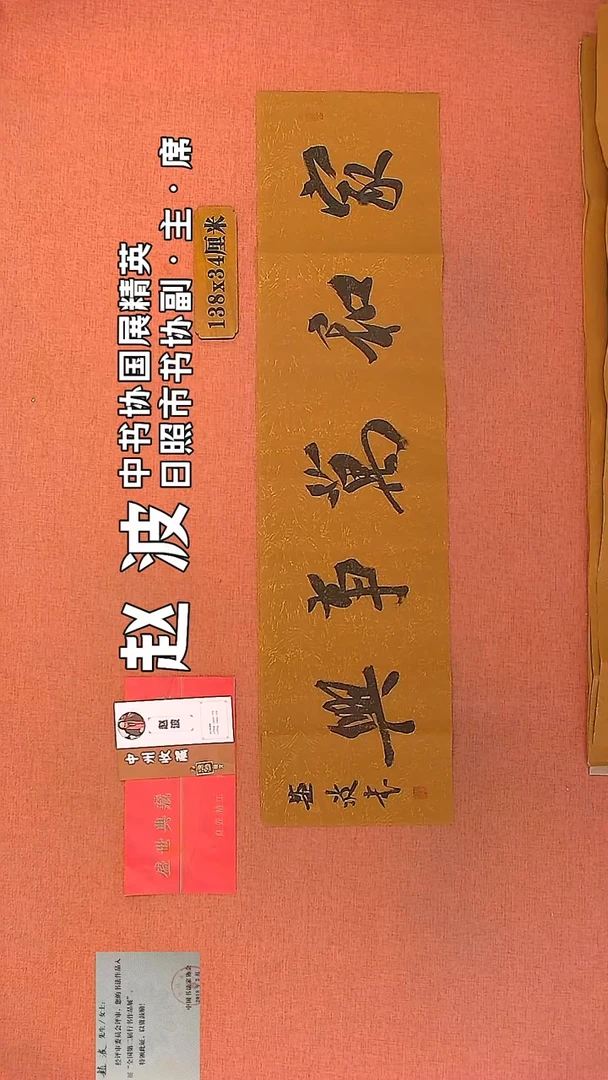 赵波
中书协国展精英
日照市书协副·主·席
138x34厘米
家和萬事興
趙波书
赵波
中州收藏
盛世典藏
赵波 先生/女士：
经评审委员会评审，您的书法作品入
展“全国第二届行书作品展”，
特颁此证，以资鼓励！
中国书法家协会